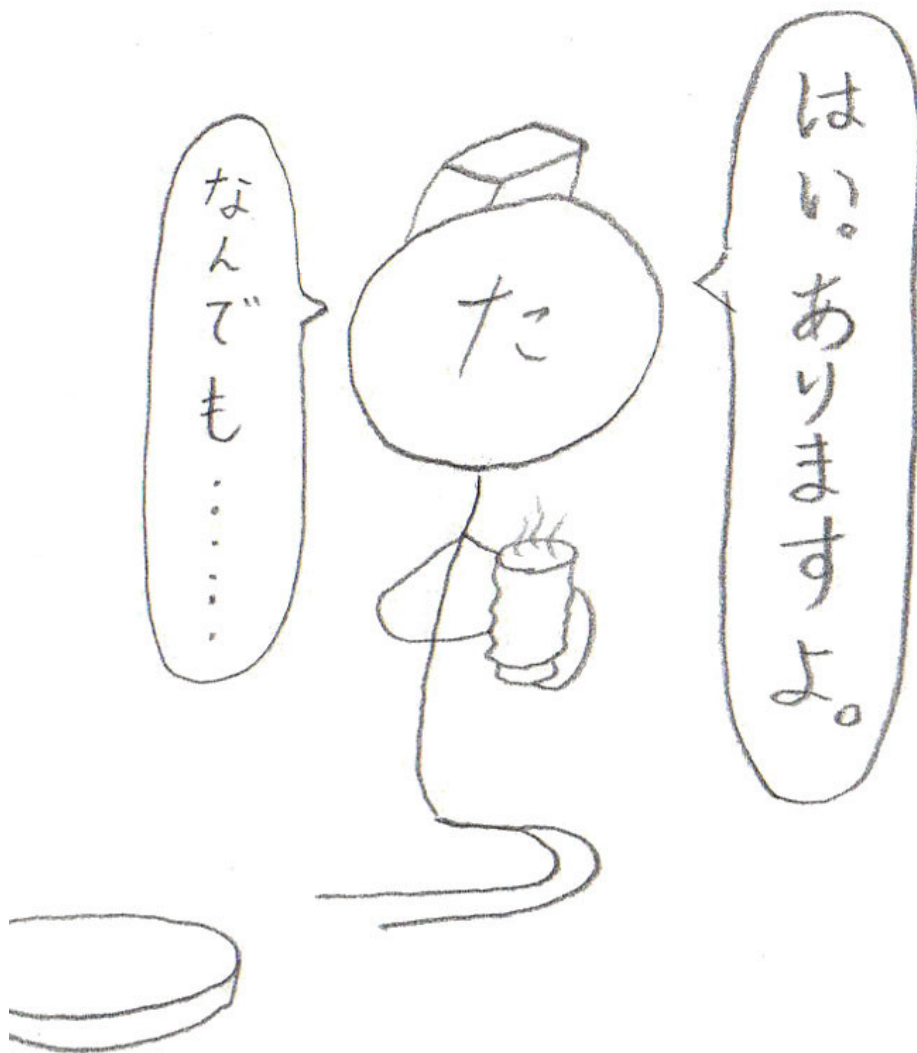 はい。ありますよ。
た
なんでも……